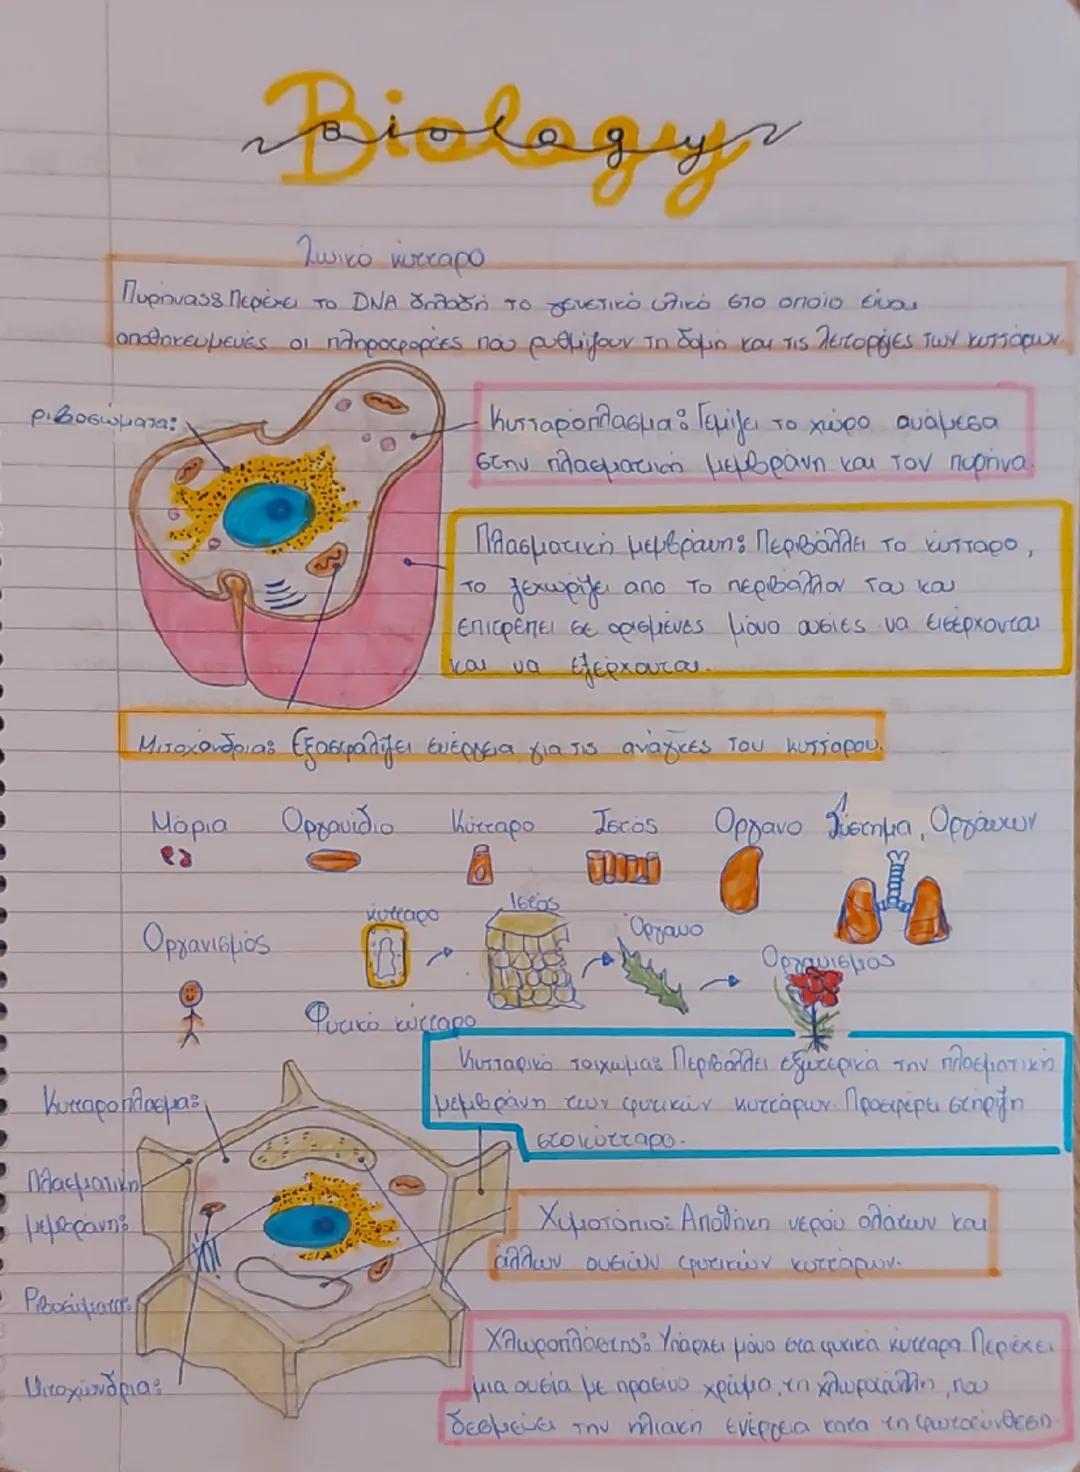 Biology
Ζωικό κύτταρο
Πυρήνας: Περιέχει το DNA δηλαδή το γενετικό υλικό στο οποίο είναι
αποθηκευμενές οι πληροφορίες που ρυθμίζουν τη δομή και τις λειτοργίες των κυττάρων.
ριβοσώματα:
Κυτταρόπλασμα: Γεμίζει το χώρο ανάμεσα
στην πλασματική μεμβράνη και τον πυρήνα.
Πλασματική μεμβράνη: Περιβάλλει το κύτταρο,
το ξεχωρίζει απο το περιβάλλον του και
επιτρέπει σε ορισμένες μόνο ουσίες να εισέρχονται
και να εξέρχονται.
Μιτοχόνδρια: Εξασφαλίζει ενέργεια για τις ανάγκες του κυττάρου.
Μόρια Οργανίδιο Κύτταρο Ιστός Όργανο Σύστημα Οργάνων
Οργανισμός κύτταρο Ιστός Όργανο Οργανισμός
Φυτικό κύτταρο
Κυτταρικό τοιχωμα: Περιβάλλει εξωτερικά την πλασματική
μεμβράνη των φυτικών κυττάρων. Προσφέρει στήριξη
στο κύτταρο.
Κυτταρόπλασμα:
Πλασματική
μεμβράνη:
Χυμοτόπιο: Αποθήκη νερού αλάτων και
άλλων ουσιών φυτικών κυττάρων.
Ριβοσώματα:
Χλωροπλάστης: Υπάρχει μόνο στα φυτικά κύτταρα. Περιέχει
μια ουσία με πράσινο χρώμα, τη χλωροφύλλη, που
δεσμεύει την ηλιακή ενέργεια κατα τη φωτοσύνθεση.
Μιτοχόνδρια: